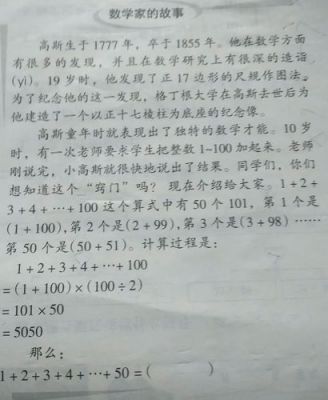 数学家的故事
高斯生于1777年，卒于1855年。他在数学方面
有很多的发现，并且在数学研究上有很深的造诣
(yì)。19岁时，他发现了正17边形的尺规作图法。
为了纪念他的这一发现，格丁根大学在高斯去世后为
他建造了一个以正十七棱柱为底座的纪念像。
高斯童年时就表现出了独特的数学才能。10岁
时，有一次老师要求学生把整数1~100加起来。老师
刚说完，小高斯就很快地说出了结果。同学们，你们
想知道这个“窍门”吗？现在介绍给大家。1+2+
3+4+…+100这个算式中有50个101，第1个是
(1+100)，第2个是(2+99)，第3个是(3+98)……
第50个是(50+51)。计算过程是：
1+2+3+4+…+100
=(1+100)×(100÷2)
=101×50
=5050
那么：
1+2+3+4+…+50=( )